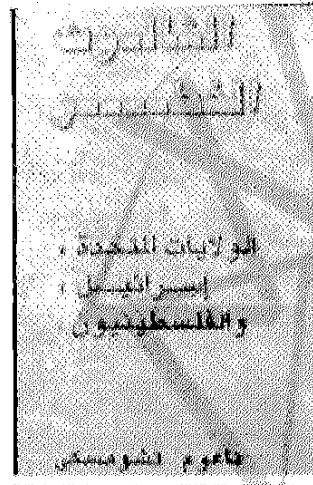 الثالوث
الخطير
الولايات المتحدة ،
إسرائيل ،
والفلسطينيون
ناعوم تشومسكي